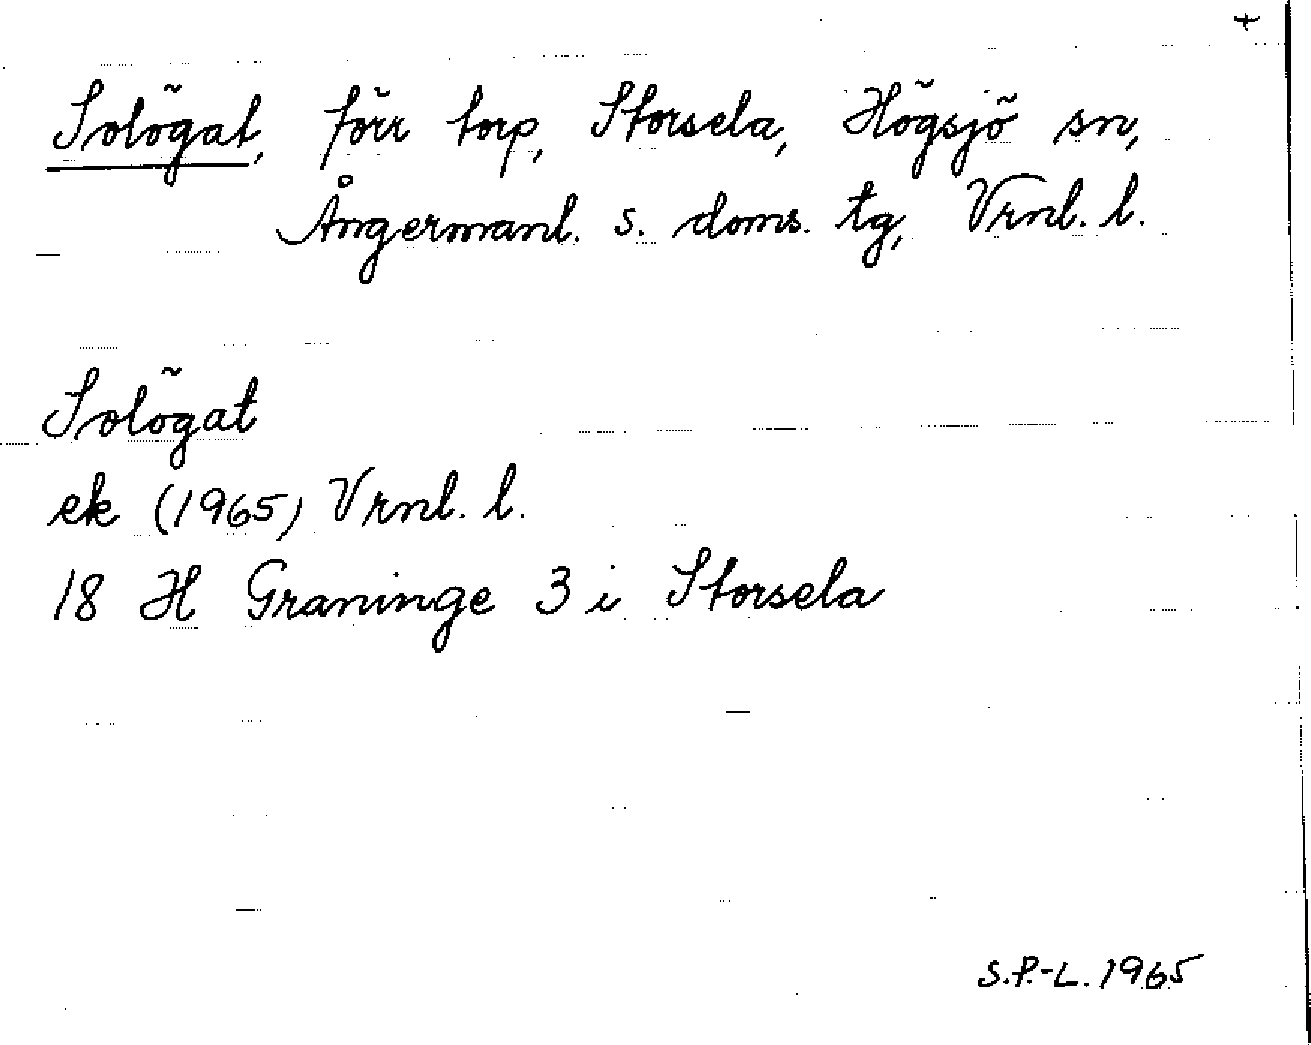 +
Solögat, förr torp, Storsela, Högsjö sn,
Ångermanl. s. doms. tg, Vrnl. l.
Solögat
ek (1965) Vrnl. l.
18 H Graninge 3 i Storsela
S.P.-L. 1965